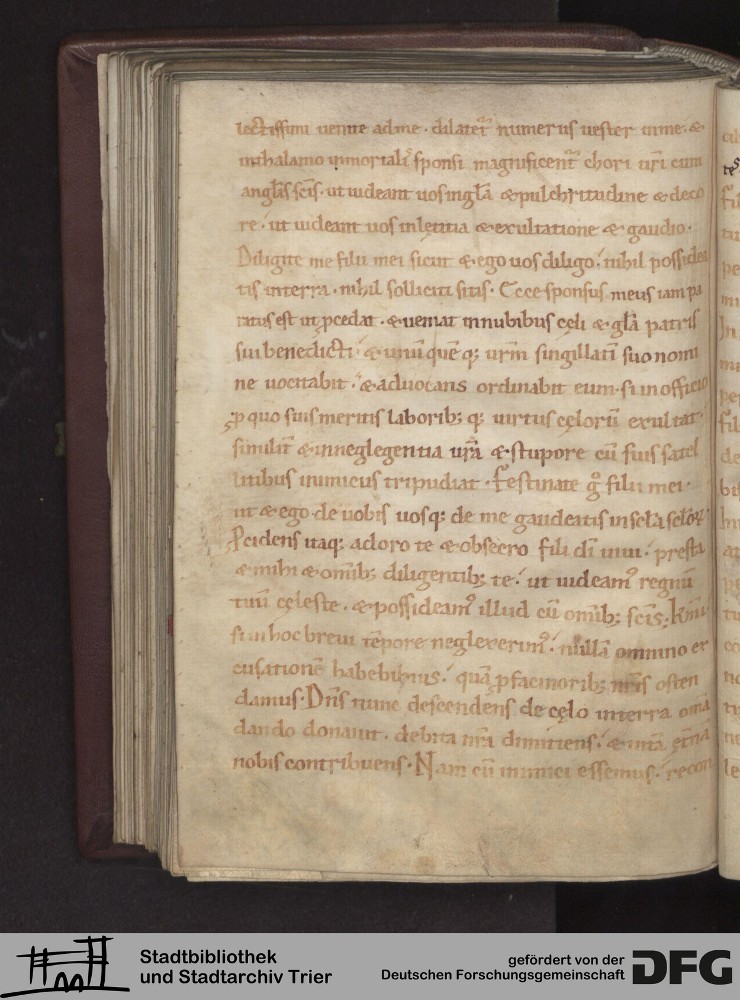 lectissimi uenite ad me · dilatet̃ numerus uester in me · &
in thalamo inmortalis sponsi magnificent̃ chori uri cum
anglis scīs · ut uideant uos in glā & pulchritudine & deco
re · ut uideant uos in lętitia & exultatione & gaudio ·
Diligite me filii mei sicut & ego uos diligo · nihil possidea
tis in terra · nihil solliciti sitis · Ecce sponsus meus iam pa
ratus est ut pcedat · & ueniat in nubibus cęli & glā patris
sui benedicti · & unū quēq; urm singillatī suo nomi
ne uocitabit · & aduocans ordinabit eum · si in officio
p quo suis meritis laborib; q; uirtus cęlorū exultat ·
similit̃ & in neglegentia urā & stupore cū suis satel
litibus inimicus tripudiat · Festinate g° filii mei ·
ut & ego de uobis uosq; de me gaudeatis in scla sclorʒ
Pcidens itaq; adoro te & obsecro fili dī uiui · presta
& mihi & omib; diligentib; te · ut uideam' regnū
tuū cęleste · & possideam' illud cū omib; scīs;
si in hoc breui tēpore neglexerim' · nullā omnino ex
cusationē habebimus · quā p facinorib; nris osten
damus · Dns nunc descendens de cęlo in terra omā
dando donauit · debita nra dimittens · & uitā ęt̃nā
nobis contribuens · Nam cū inimici essemus · recon
Stadtbibliothek
und Stadtarchiv Trier
gefördert von der
Deutschen Forschungsgemeinschaft
DFG